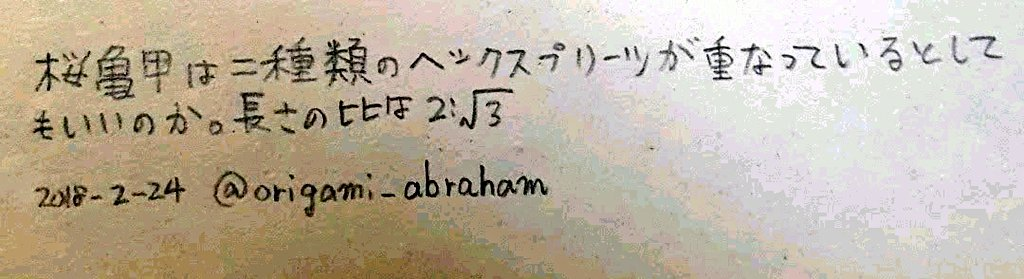 桜亀甲は二種類のヘックスプリーツが重なっているとして
もいいのか。長さの比は2:√3
2018-2-24 @origami_abraham